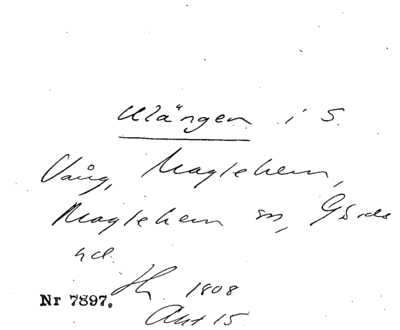 ulängen i S.
Vång, Maglehem,
Maglehem sn, Gärds
hd.
Hh 1808
Akt 15
Nr 7897.